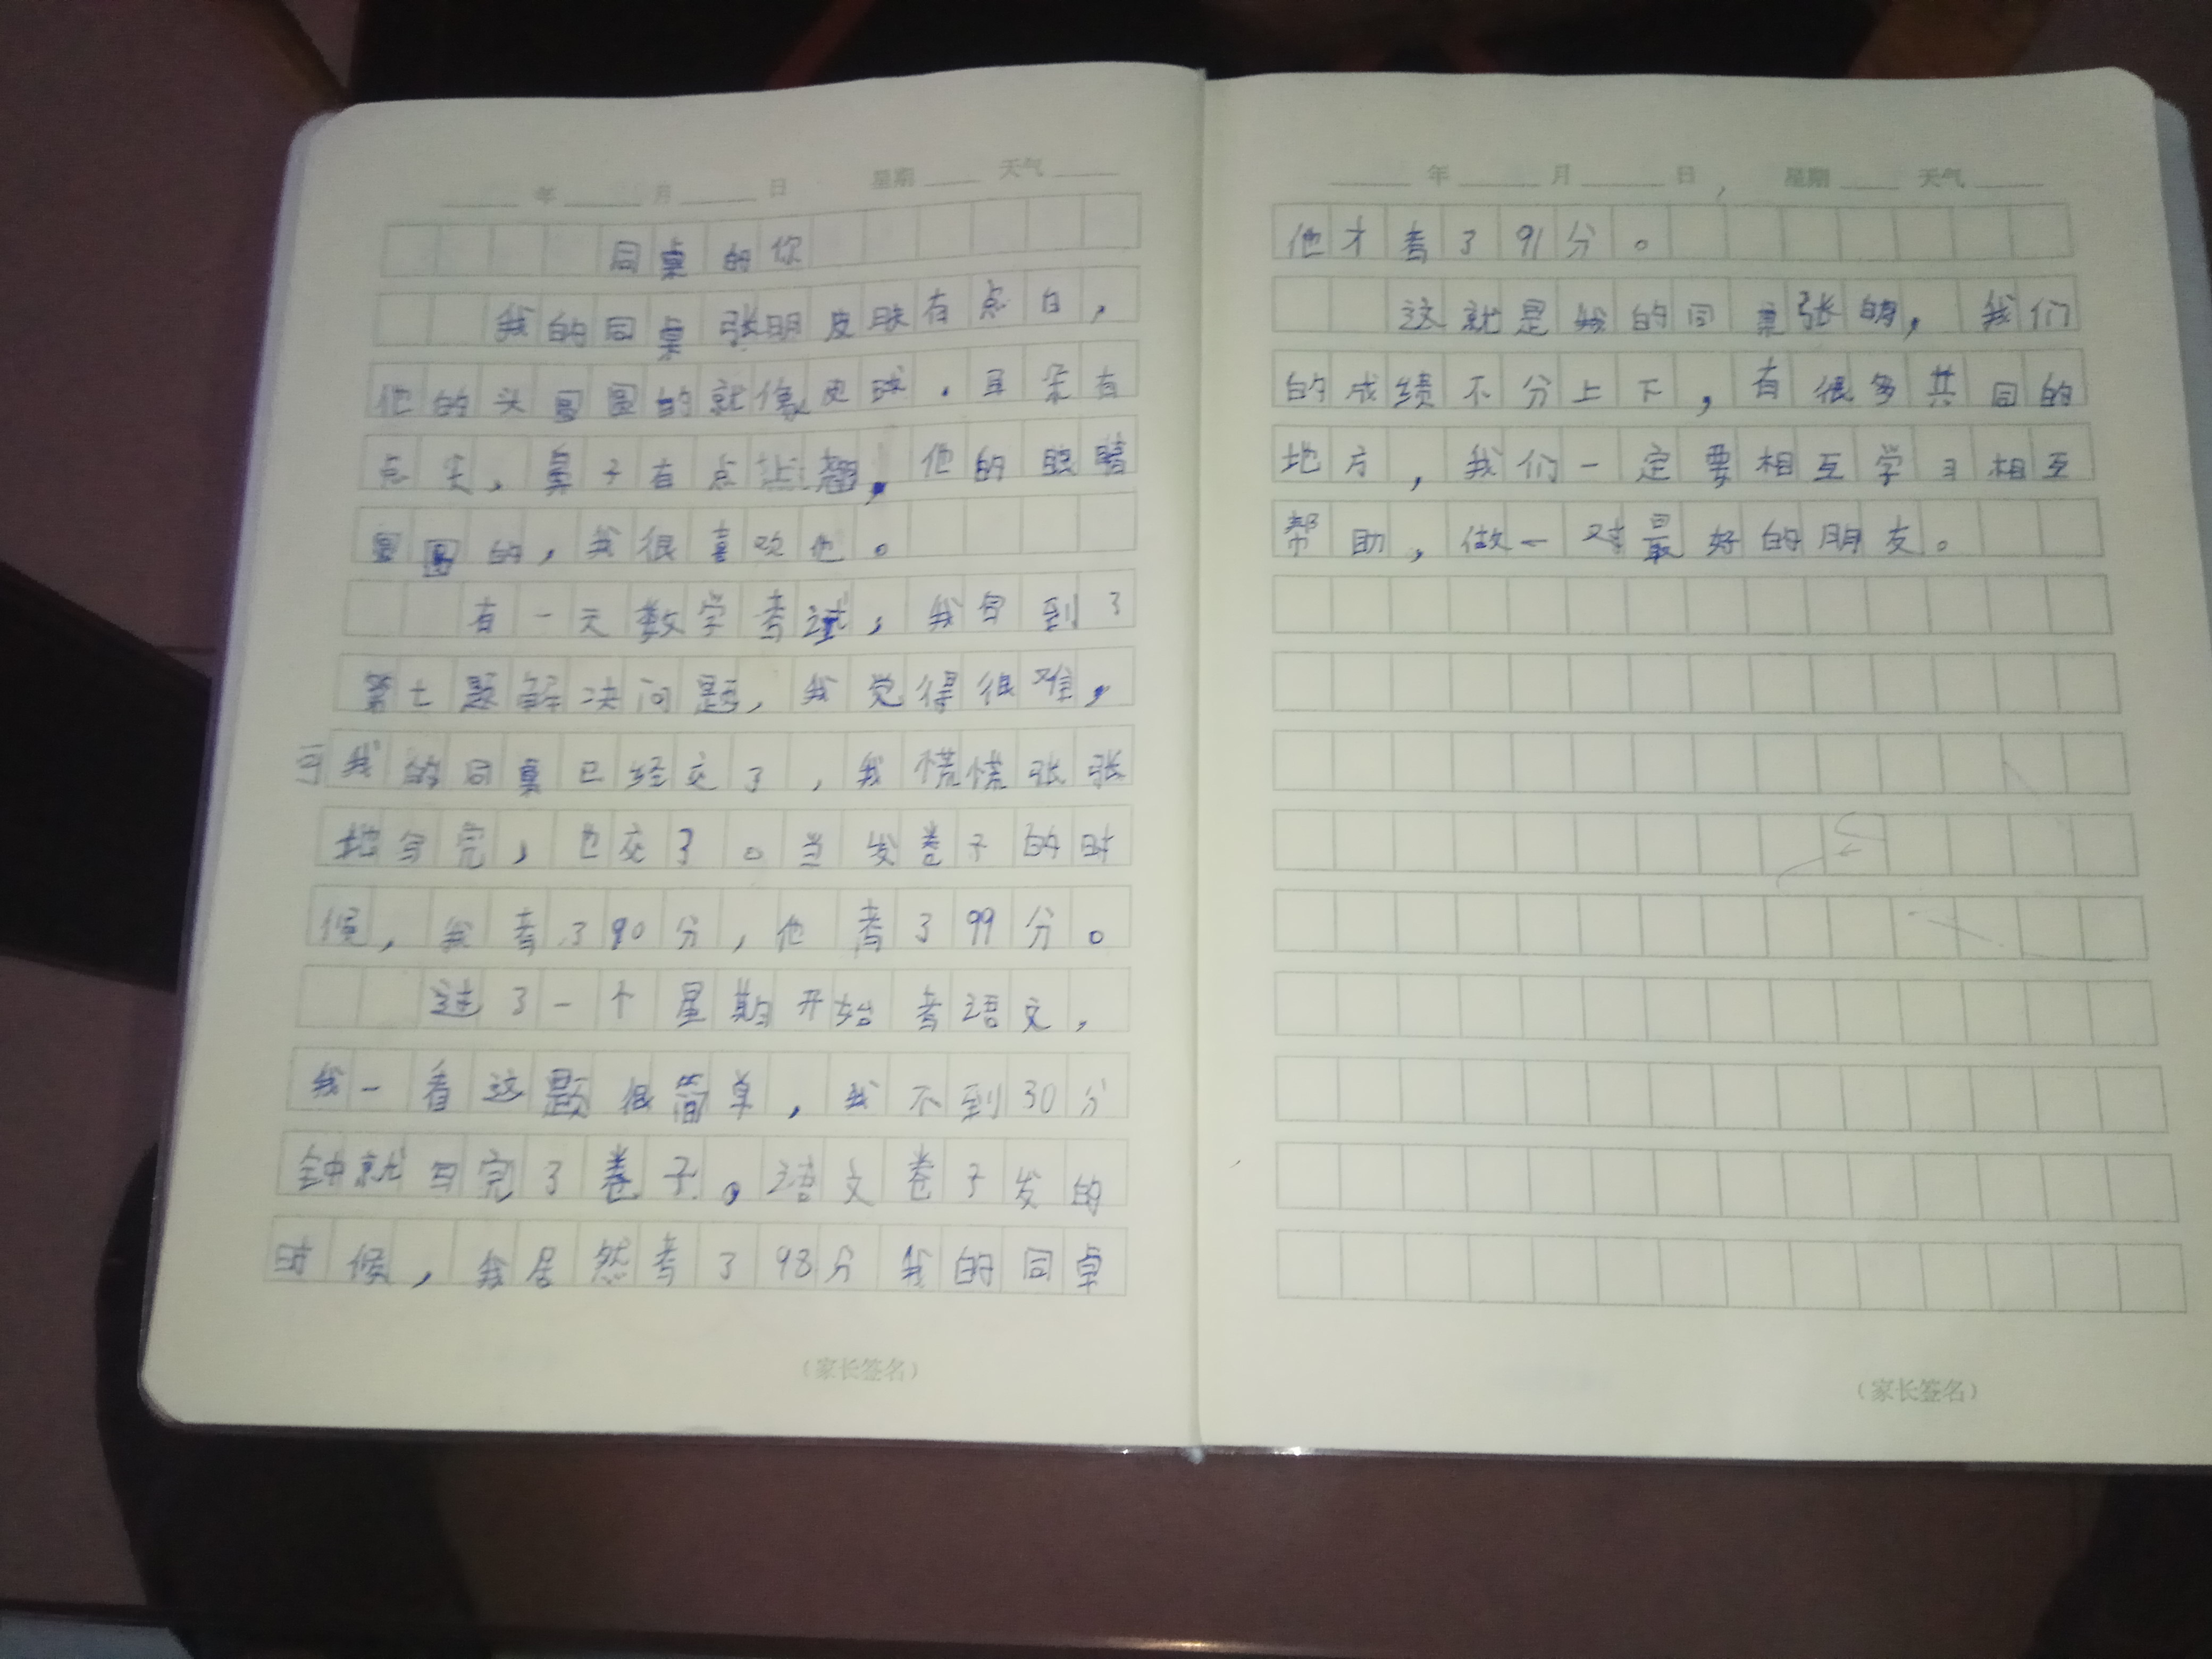 年 月 日 星期 天气
同桌的你
我的同桌张明皮肤有点白，
他的头圆圆的就像皮球．耳朵有
点尖，鼻子有点点翘，他的眼睛
圆圆的，我很喜欢他。
有一天数学考试，我写到了
第七题解决问题，我觉得很难，
可我的同桌已经交了，我慌慌张张
地写完，也交了。当发卷子的时
候，我考了90分，他考了99分。
过了一个星期开始考语文，
我一看这题很简单，我不到30分
钟就写完了卷子。语文卷子发的
时候，我居然考了98分我的同桌
（家长签名）
年 月 日 星期 天气
他才考了91分。
这就是我的同桌张明，我们
的成绩不分上下，有很多共同的
地方，我们一定要相互学习相互
帮助，做一对最好的朋友。
（家长签名）